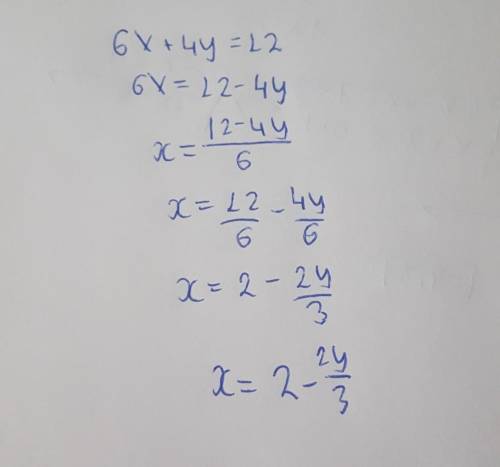 6x+4y=12
6x=12-4y
x=12-4y/6
x=12/6-4y/6
x=2-2y/3
x=2-2y/3